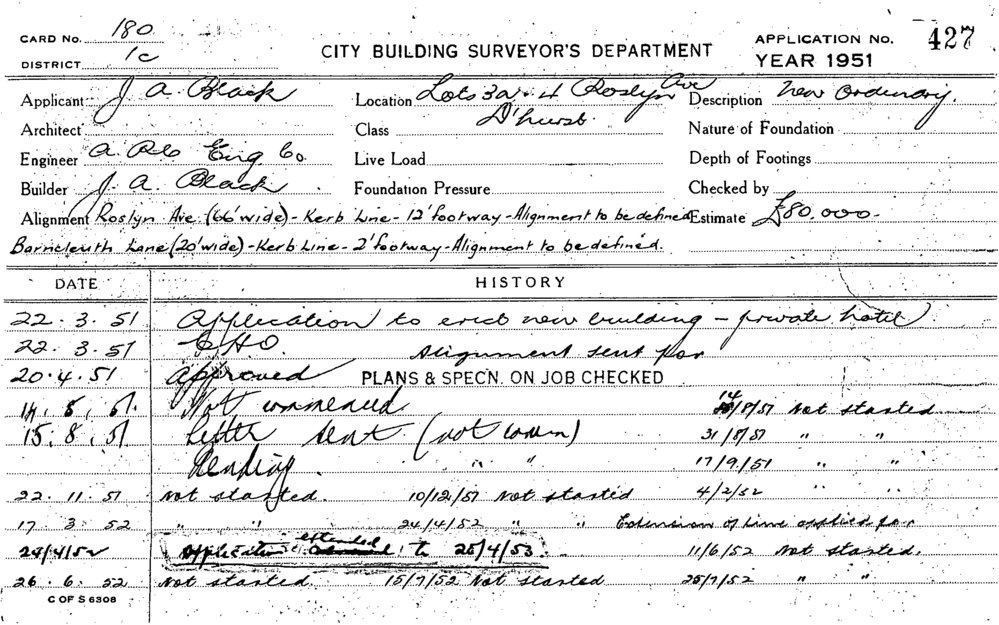 CARD No. 180
DISTRICT 1c
CITY BUILDING SURVEYOR'S DEPARTMENT
APPLICATION No. 427
YEAR 1951
Applicant J. A. Black
Location Lots 3a. 4 Roslyn Ave
D'hurst.
Description New Ordinary.
Architect
Class
Nature of Foundation
Engineer A. Reb Eng Co
Live Load
Depth of Footings
Builder J. A. Black
Foundation Pressure
Checked by
Alignment Roslyn Ave. (66' wide) - Kerb Line - 12' footway - Alignment to be defined
Estimate £80,000-
Barncleuth Lane (20' wide) - Kerb Line - 2' footway - Alignment to be defined.
DATE HISTORY
22. 3. 51 Application to erect new building - private hotel
22. 3. 51 C.H.O. Alignment sent for
20. 4. 51 Approved PLANS & SPEC'N. ON JOB CHECKED
14. 8. 51. Not commenced 14/8/51 Not started
15. 8. 51 Letter sent (not comm) 31/8/51 " "
Pending. " " 17/9/51 " "
22. 11. 51 Not started. 10/12/51 Not started 4/2/52 " "
17. 3. 52 " " 24/4/52 " " Extension of time applied for
24/4/52 Application extended to 25/4/53. 11/6/52 Not started.
26. 6. 52 Not started. 15/7/52 Not started 25/7/52 " "
C OF S 6308